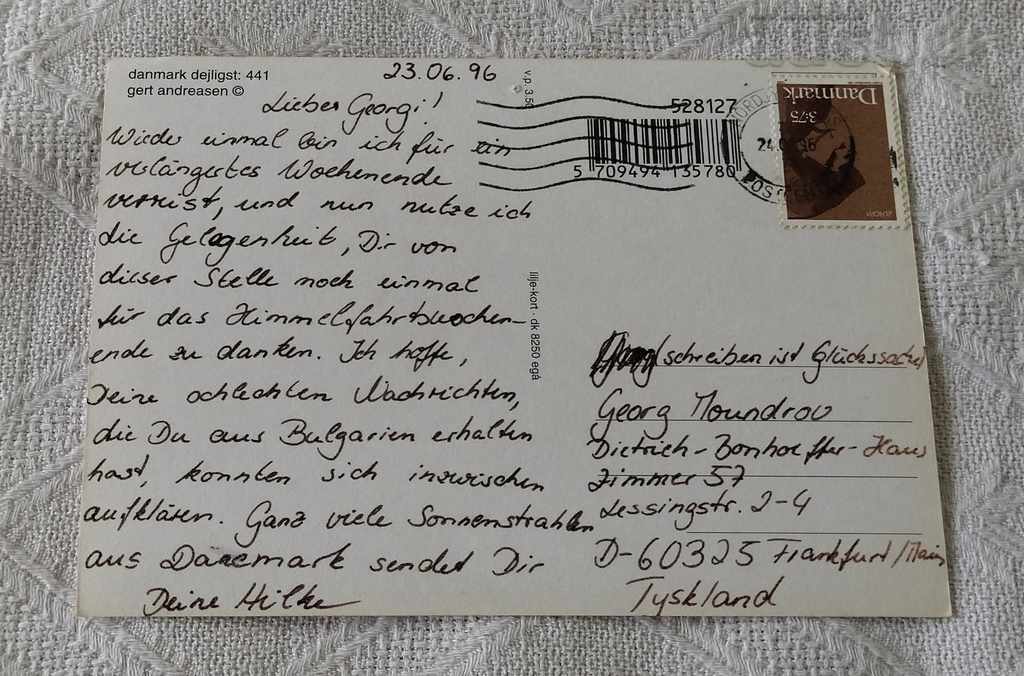 danmark dejligst: 441
gert andreasen ©
23.06.96
Lieber Georgi!
Wieder einmal bin ich für ein
verlängertes Wochenende
verreist, und nun nutze ich
die Gelegenheit, Dir von
dieser Stelle noch einmal
für das Himmelfahrtswochen-
ende zu danken. Ich hoffe,
Deine schlechten Nachrichten,
die Du aus Bulgarien erhalten
hast, konnten sich inzwischen
aufklären. Ganz viele Sonnenstrahlen
aus Dänemark sendet Dir
Deine Hilke
v.p. 3.50
lilje-kort · dk 8250 egå
528127
5 709494 135780
Danmark
3.75
EUROPA
schreiben ist Glückssache!
Georg Moundrov
Dietrich-Bonhoeffer-Haus
Zimmer 57
Lessingstr. 2-4
D-60325 Frankfurt/Main
Tyskland